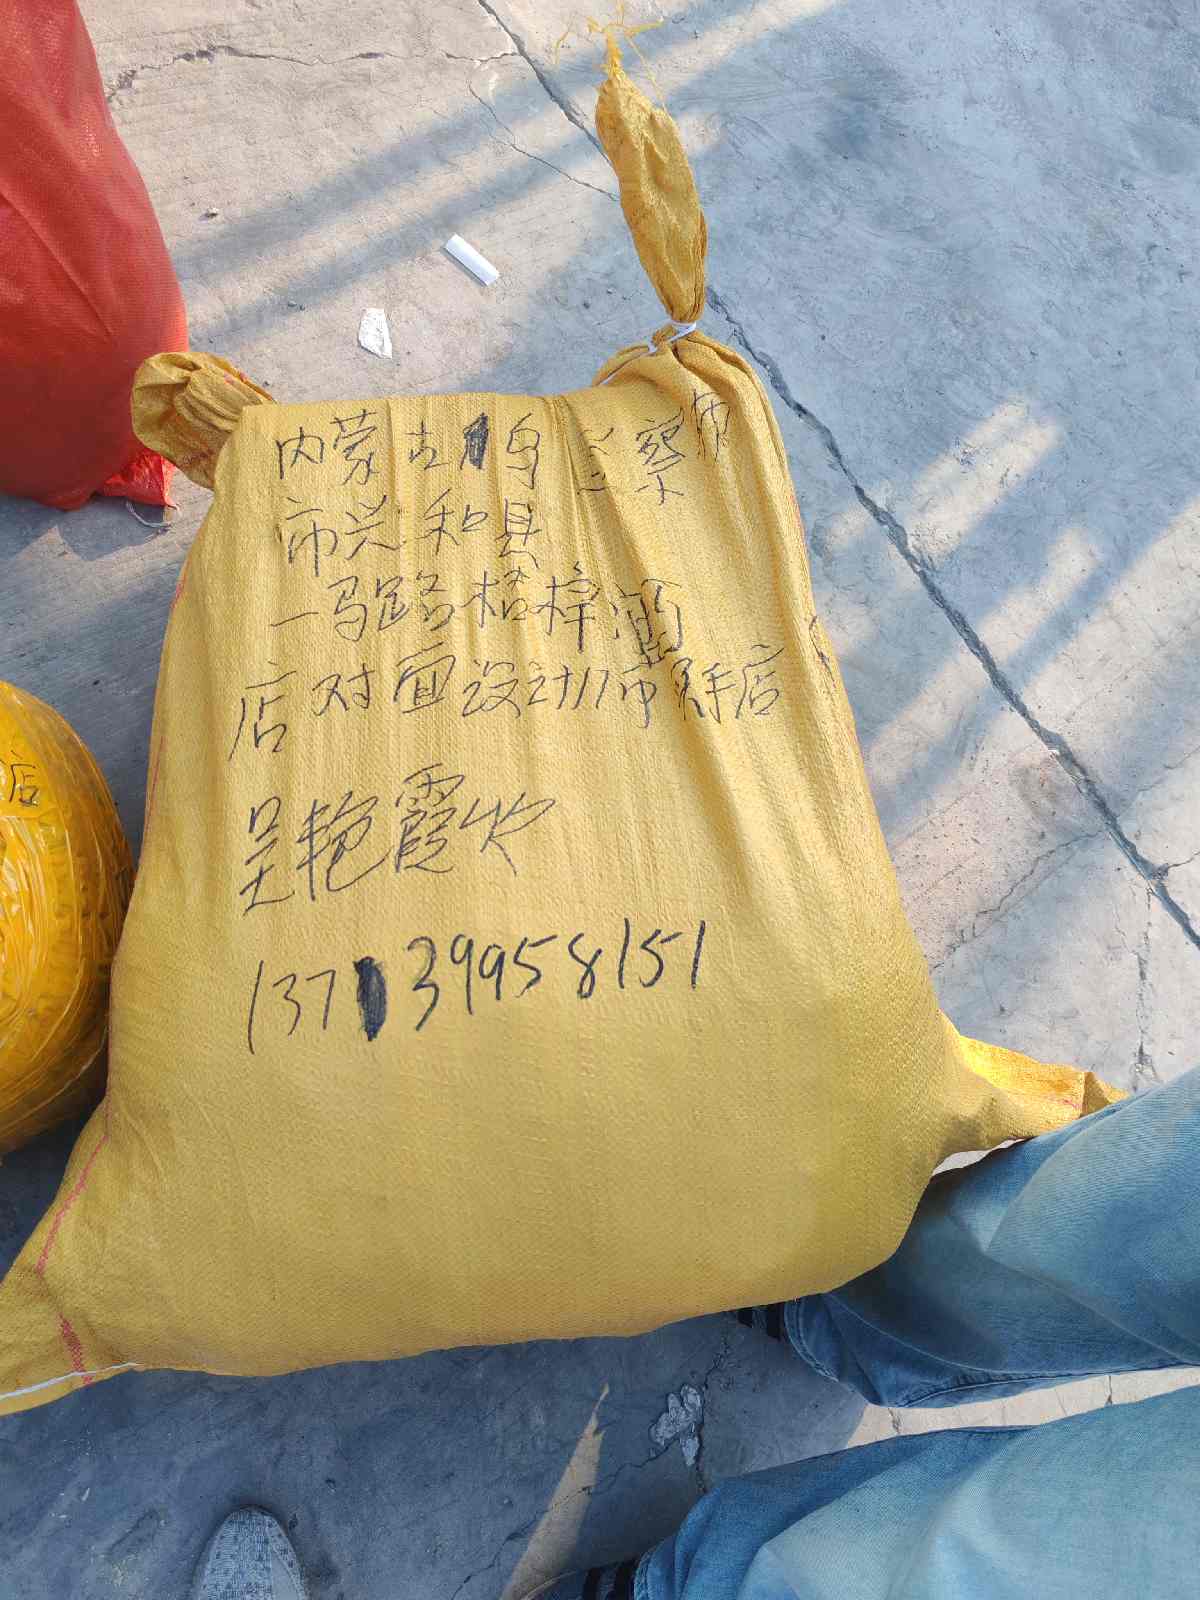 内蒙古乌兰察布
市兴和县
一马路桔梓酒
店对面设计师鞋店
吴艳霞收
13739958151
店